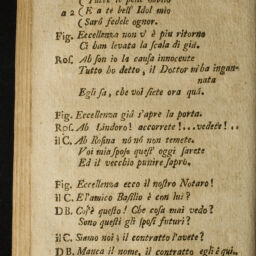 a 2 ( E a te bell' Idol mio
( Sarò fedele ognor.
Fig. Eccellenza non v' è piu ritorno
Ci han levata la scala di giù.
Ros. Ah son io la causa innocente
Tutto ho detto, il Dottor m'ha ingan-
nata
Egli sa, che voi siete ora quà.
Fig. Eccellenza già s'apre la porta.
Ros. Ah Lindoro! accorrete!... vedete!..
il C. Ah Rosina nò nò non temete.
Voi mia sposa quest' oggi sarete
Ed il vecchio punire saprò.
Fig. Eccellenza ecco il nostro Notaro!
il C. E l'amico Basilio è con lui?
D B. Cos'è questo! Che cosa mai vedo?
Sono questi gli sposi futuri?
il C. Siamo noi; il contratto l'avete?
D B. Manca il nome, il contratto egli è quì..